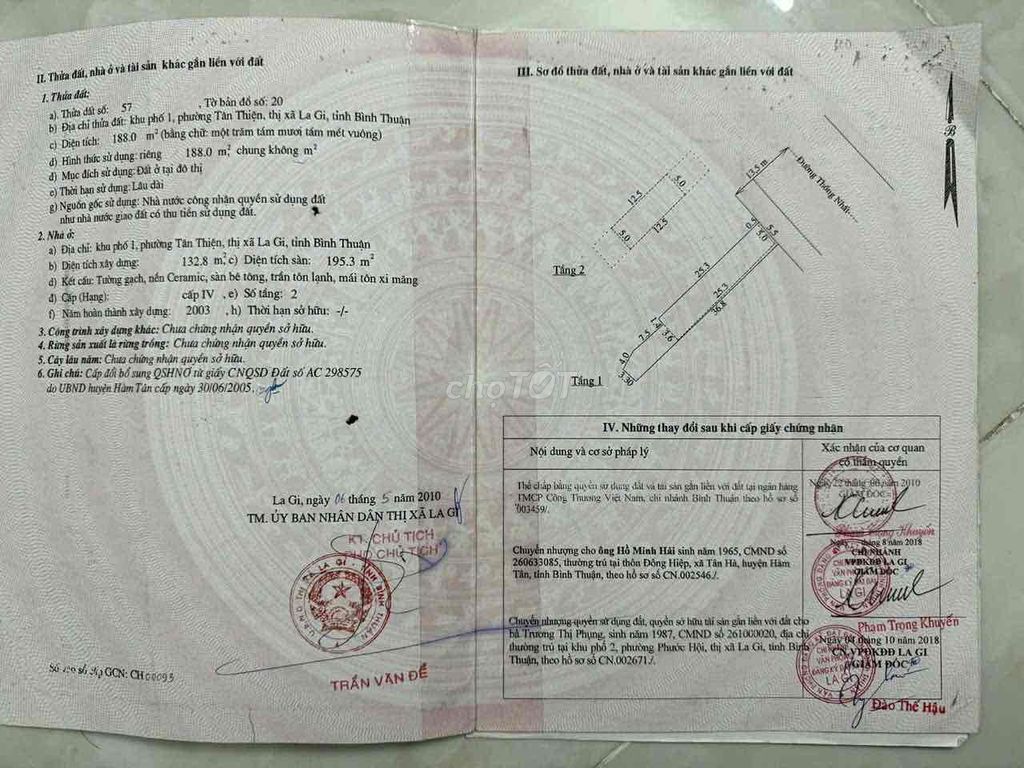 II. Thửa đất, nhà ở và tài sản khác gắn liền với đất
1. Thửa đất:
a). Thửa đất số: 57 , Tờ bản đồ số: 20
b) Địa chỉ thửa đất: khu phố 1, phường Tân Thiện, thị xã La Gi, tỉnh Bình Thuận
c) Diện tích: 188.0 m² (bằng chữ: một trăm tám mươi tám mét vuông)
d) Hình thức sử dụng: riêng 188.0 m², chung không m²
đ) Mục đích sử dụng: Đất ở tại đô thị
e) Thời hạn sử dụng: Lâu dài
g) Nguồn gốc sử dụng: Nhà nước công nhận quyền sử dụng đất
như nhà nước giao đất có thu tiền sử dụng đất.
2. Nhà ở:
a) Địa chỉ: khu phố 1, phường Tân Thiện, thị xã La Gi, tỉnh Bình Thuận
b) Diện tích xây dựng: 132.8 m², c) Diện tích sàn: 195.3 m²
d) Kết cấu: Tường gạch, nền Ceramic, sàn bê tông, trần tôn lạnh, mái tôn xi măng
đ) Cấp (Hạng): cấp IV , e) Số tầng: 2
f) Năm hoàn thành xây dựng: 2003 , h) Thời hạn sở hữu: -/-
3. Công trình xây dựng khác: Chưa chứng nhận quyền sở hữu.
4. Rừng sản xuất là rừng trồng: Chưa chứng nhận quyền sở hữu.
5. Cây lâu năm: Chưa chứng nhận quyền sở hữu.
6. Ghi chú: Cấp đổi bổ sung QSHNƠ từ giấy CNQSD Đất số AC 298575
do UBND huyện Hàm Tân cấp ngày 30/06/2005.
La Gi, ngày 06 tháng 5 năm 2010
TM. ỦY BAN NHÂN DÂN THỊ XÃ LA GI
KT. CHỦ TỊCH
PHÓ CHỦ TỊCH
U.B.N.D THỊ XÃ LA GI - TỈNH BÌNH THUẬN
TRẦN VĂN ĐỂ
Số vào sổ cấp GCN: CH 00093
III. Sơ đồ thửa đất, nhà ở và tài sản khác gắn liền với đất
B
13.5 m
Đường Thống Nhất
12.5
5.0
5.0
12.5
Tầng 2
0.5
5.5
5.0
25.3
25.3
36.8
1.4
7.5
3.6
4.0
3.30
Tầng 1
chợTỐT
IV. Những thay đổi sau khi cấp giấy chứng nhận
Nội dung và cơ sở pháp lý
Xác nhận của cơ quan
có thẩm quyền
Thế chấp bằng quyền sử dụng đất và tài sản gắn liền với đất tại ngân hàng
TMCP Công Thương Việt Nam, chi nhánh Bình Thuận theo hồ sơ số
003459/.
Ngày 22 tháng 06 2010
GIÁM ĐỐC
Phạm Trọng Khuyến
Chuyển nhượng cho ông Hồ Minh Hải sinh năm 1965, CMND số
260633085, thường trú tại thôn Đông Hiệp, xã Tân Hà, huyện Hàm
Tân, tỉnh Bình Thuận, theo hồ sơ số CN.002546./.
Ngày tháng 8 năm 2018
CHI NHÁNH
VPĐKĐĐ LA GI
GIÁM ĐỐC
LA GI
Phạm Trọng Khuyến
Chuyển nhượng quyền sử dụng đất, quyền sở hữu tài sản gắn liền với đất cho
bà Trương Thị Phụng, sinh năm 1987, CMND số 261000020, địa chỉ
thường trú tại khu phố 2, phường Phước Hội, thị xã La Gi, tỉnh Bình
Thuận, theo hồ sơ số CN.002671./.
Ngày 04 tháng 10 năm 2018
CN.VPĐKĐĐ LA GI
GIÁM ĐỐC
CHI NHÁNH
VĂN PHÒNG
ĐĂNG KÝ ĐẤT ĐAI
LA GI
Đào Thế Hậu